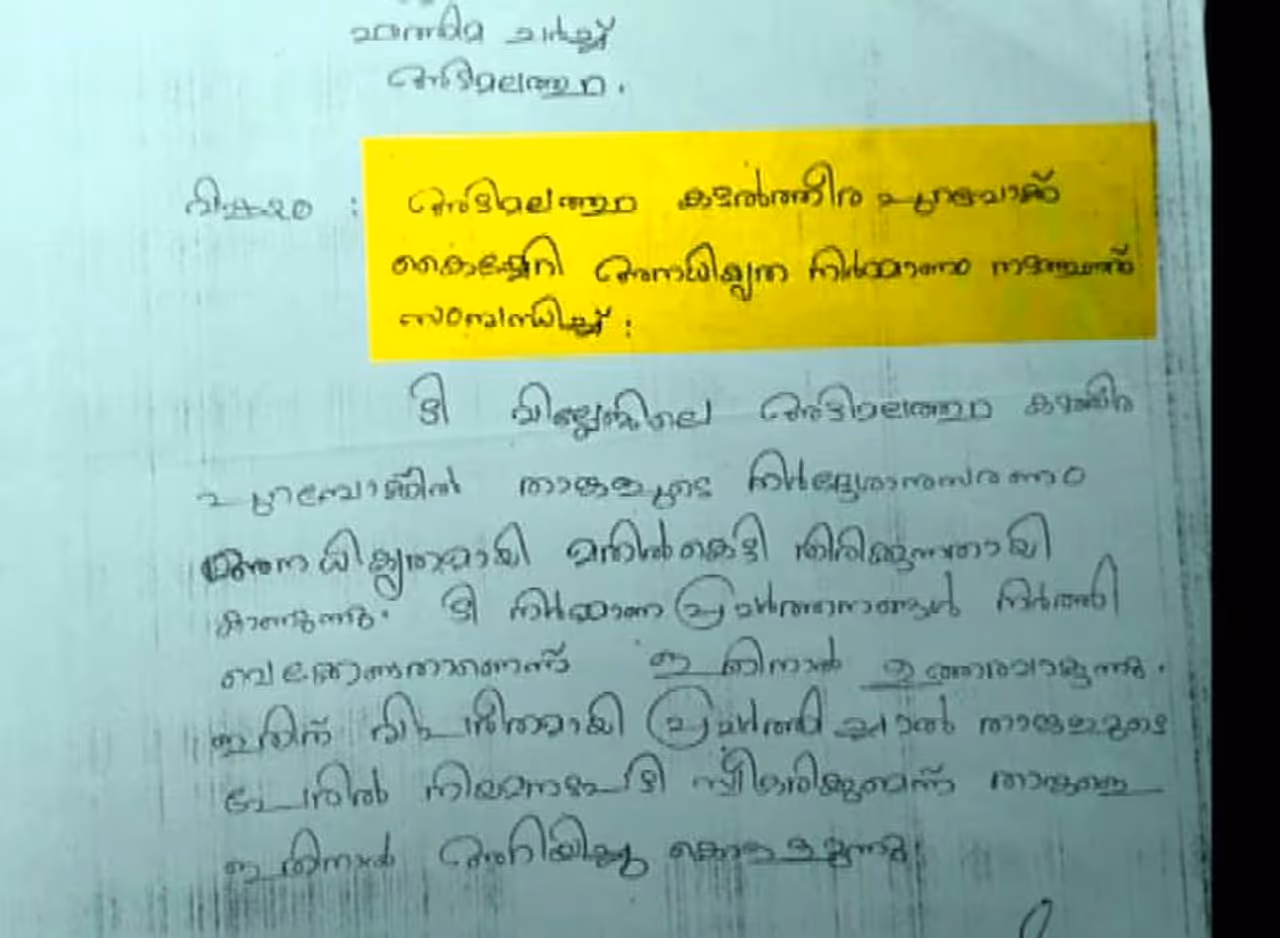 ഫാത്തിമ ചർച്ച്
അടിമലത്തുറ.
വിഷയം : അടിമലത്തുറ കടൽത്തീര പുറമ്പോക്ക്
കൈയ്യേറി അനധികൃത നിർമ്മാണം നടത്തുന്നത്
സംബന്ധിച്ച് :
ടി വില്ലേജിലെ അടിമലത്തുറ കടൽതീര
പുറമ്പോക്കിൽ താങ്കളുടെ നിർദ്ദേശാനുസരണം
അനധികൃതമായി മതിൽകെട്ടി തിരിക്കുന്നതായി
കാണുന്നു. ടി നിർമ്മാണ പ്രവർത്തനങ്ങൾ നിർത്തി
വെക്കേണ്ടതാണെന്ന് ഇതിനാൽ ഉത്തരവാകുന്നു.
ഇതിന് വിപരീതമായി പ്രവർത്തിച്ചാൽ താങ്കളുടെ
പേരിൽ നിയമനടപടി സ്വീകരിക്കുമെന്ന് താങ്കളെ
ഇതിനാൽ അറിയിച്ചു കൊള്ളുന്നു.